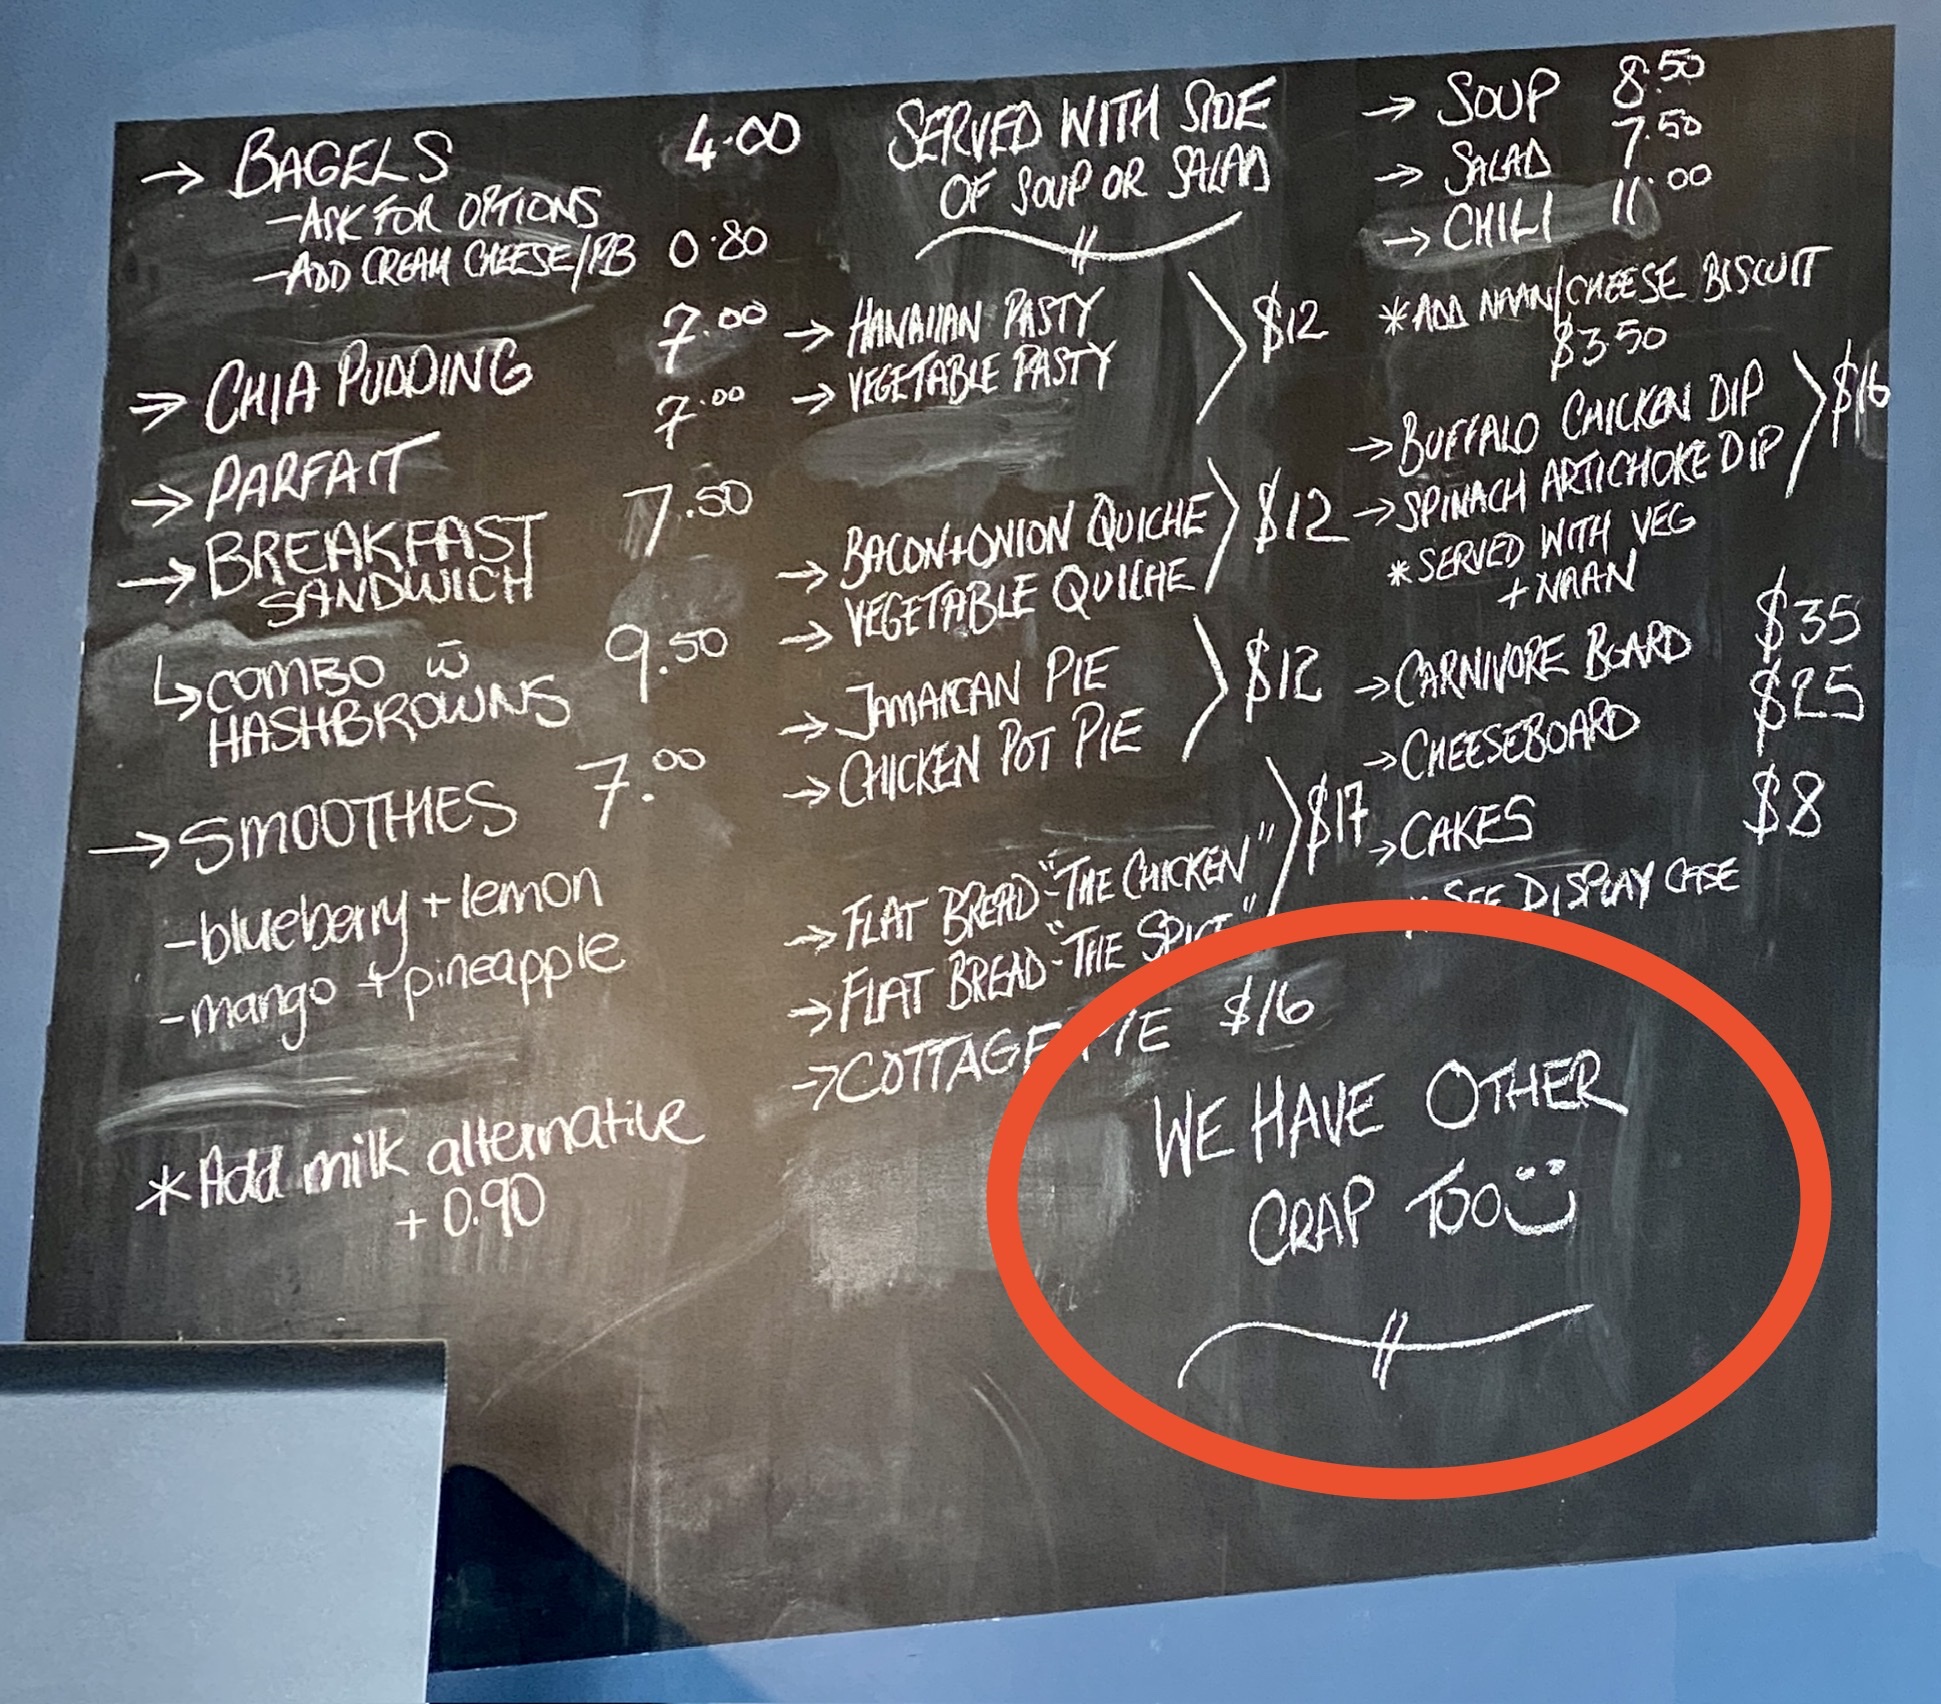 → BAGELS 4.00
- ASK FOR OPTIONS
- ADD CREAM CHEESE/PB 0.80
→ CHIA PUDDING 7.00
→ PARFAIT 7.00
→ BREAKFAST 7.50
SANDWICH
↳ COMBO w̄ 9.50
HASHBROWNS
→ SMOOTHIES 7.00
- blueberry + lemon
- mango + pineapple
* Add milk alternative
+ 0.90
SERVED WITH SIDE
OF SOUP OR SALAD
→ HAWAIIAN PASTY
→ VEGETABLE PASTY
$12
→ BACON + ONION QUICHE
→ VEGETABLE QUICHE
$12
→ JAMAICAN PIE
→ CHICKEN POT PIE
$12
→ FLAT BREAD - "THE CHICKEN"
→ FLAT BREAD - "THE
$17
→ COTTAGE PIE $16
→ SOUP 8.50
→ SALAD 7.50
→ CHILI 11.00
* ADD NAAN/CHEESE BISCUIT
$3.50
→ BUFFALO CHICKEN DIP
→ SPINACH ARTICHOKE DIP
$16
* SERVED WITH VEG
+ NAAN
→ CARNIVORE BOARD $35
→ CHEESEBOARD $25
→ CAKES $8
* SEE DISPLAY CASE
WE HAVE OTHER
CRAP TOO